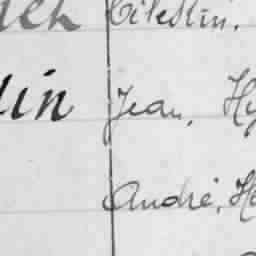 Célestin.
Jean, Hy
André, He